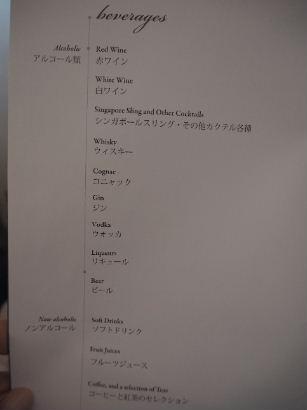 beverages
Alcoholic
アルコール類
Red Wine
赤ワイン
White Wine
白ワイン
Singapore Sling and Other Cocktails
シンガポールスリング・その他カクテル各種
Whisky
ウィスキー
Cognac
コニャック
Gin
ジン
Vodka
ウォッカ
Liqueurs
リキュール
Beer
ビール
Non-alcoholic
ノンアルコール
Soft Drinks
ソフトドリンク
Fruit Juices
フルーツジュース
Coffee, and a selection of Teas
コーヒーと紅茶のセレクション